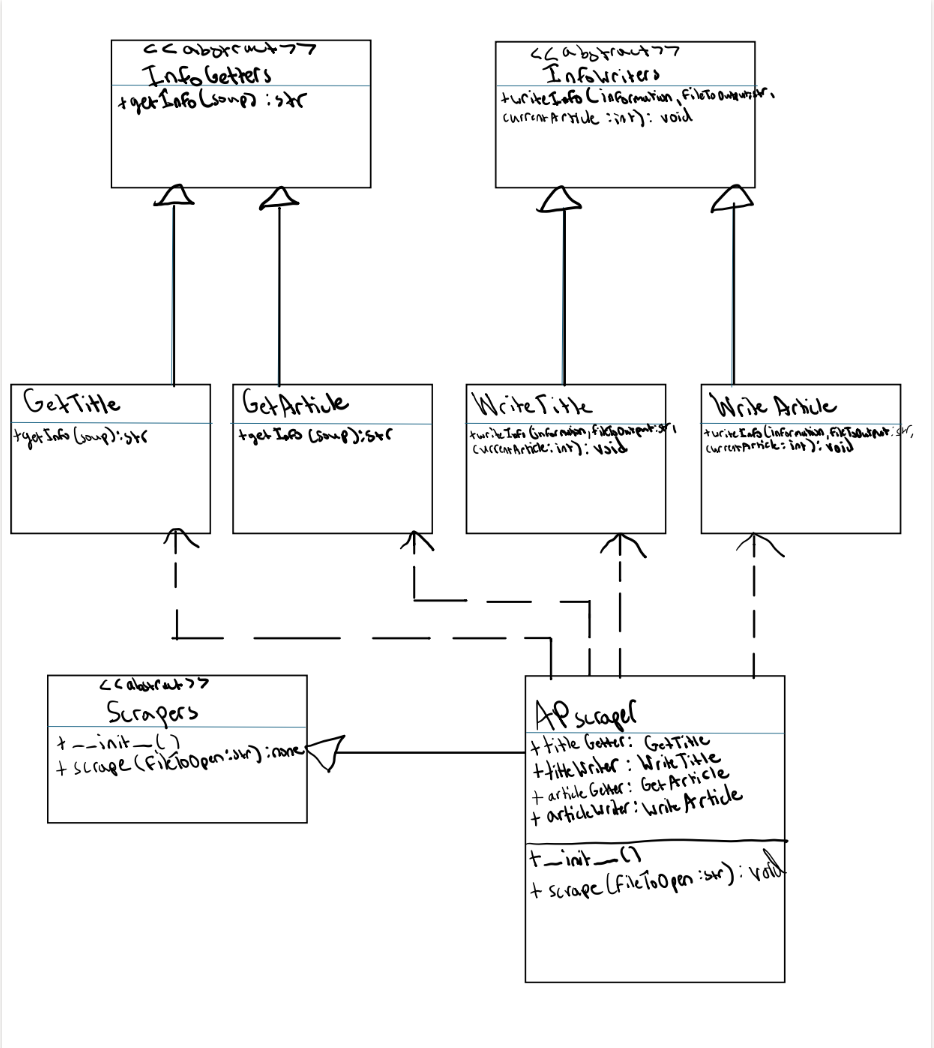 <<abstract>>
InfoGetters
+getInfo(soup):str
<<abstract>>
InfoWriters
+writeInfo(information, fileToOutput:str,
currentArticle:int): void
GetTitle
+getInfo(soup):str
GetArticle
+getInfo(soup):str
WriteTitle
+writeInfo(information, fileToOutput:str,
currentArticle:int): void
WriteArticle
+writeInfo(information, fileToOutput:str,
currentArticle:int): void
<<abstract>>
Scrapers
+__init__()
+ scrape(fileToOpen:str):none
APscraper
+titleGetter: GetTitle
+titleWriter: WriteTitle
+ articleGetter: GetArticle
+ articleWriter: WriteArticle
+__init__()
+ scrape(fileToOpen:str): void